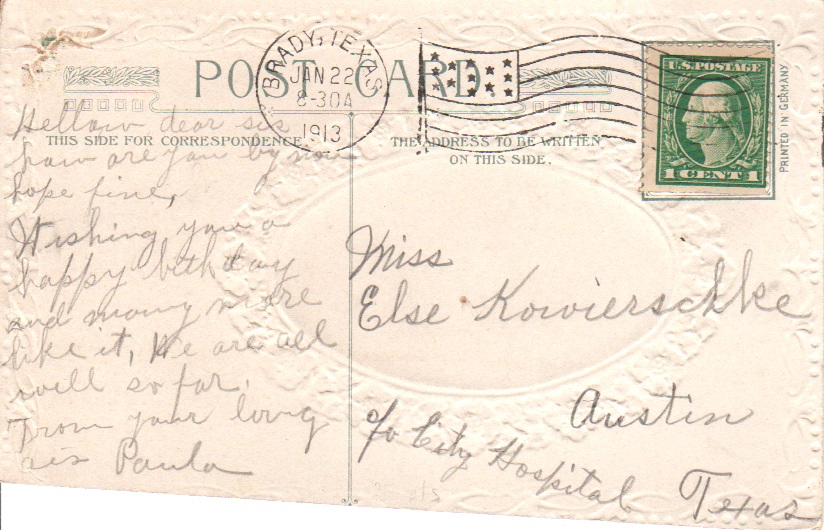 POST CARD
BRADY, TEXAS
JAN 22
8-30A
1913
U.S. POSTAGE
1 CENT 1
PRINTED IN GERMANY
THIS SIDE FOR CORRESPONDENCE.
THE ADDRESS TO BE WRITTEN
ON THIS SIDE.
Hellow dear sis
haw are you by now
hope fine,
Wishing you a
happy bithday
and many more
like it, We are all
well so far.
From your loving
sis Paula
Miss
Else Kowierschke
Austin
c/o City Hospital
Texas